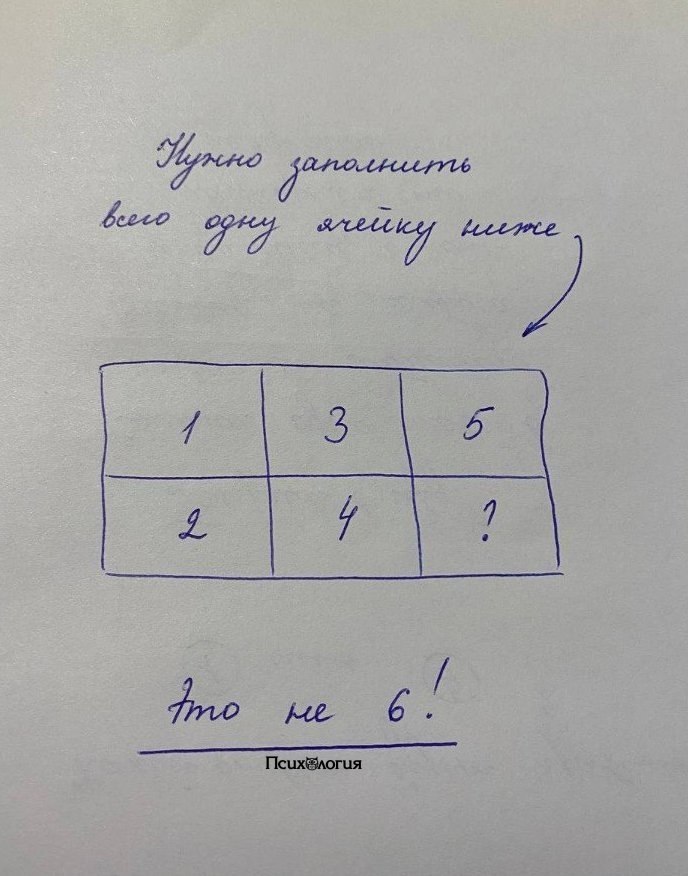 Нужно заполнить
всего одну ячейку ниже
1 3 5
2 4 ?
Это не 6!
Психология